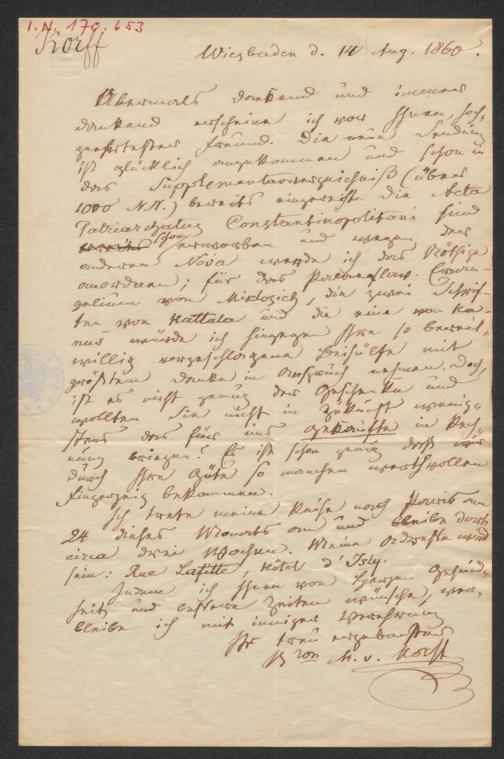 I.N. 170.653
Korff
Wiesbaden d. 14 Aug. 1860.
Abermals dankend und immer
dankend erscheine ich vor Ihnen, hoch-
geehrtester Freund. Die neue Sendung
ist glücklich angekommen und schon in
das Supplementarverzeichniß (über
1000 NN.) bereits eingereiht. Die Acta
Patriarchatus Constantinopolitani sind
bereits schon erworben und wegen der
anderen Nova werde ich das Nöthige
anordnen; für das Evan-
gelium von Miklosich, die zwei Schrif-
ten von Hattala und die eine von Ha-
nus würde ich hingegen Ihre so bereit-
willig vorgeschlagene Beihülfe mit
größtem Danke in Anspruch nehmen. Doch
ist es nicht genug der Geschenke und
wollten Sie nicht in Zukunft wenig-
stens das für uns Gekaufte in Rech-
nung bringen? Es ist schon genug daß wir
durch Ihre Güte so manchen werthvollen
Fingerzeig bekommen.
Ich trete meine Reise nach Paris am
24 dieses Monats an und bleibe dort
circa drei Wochen. Meine Adresse wird
sein: Rue Lafitte, Hôtel d'Isly.
Indem ich Ihnen von Herzen Gesund-
heit und bessere Zeiten wünsche, ver-
bleibe ich mit inniger Verehrung
Ihr treu ergebenster
Bron M. v. Korff